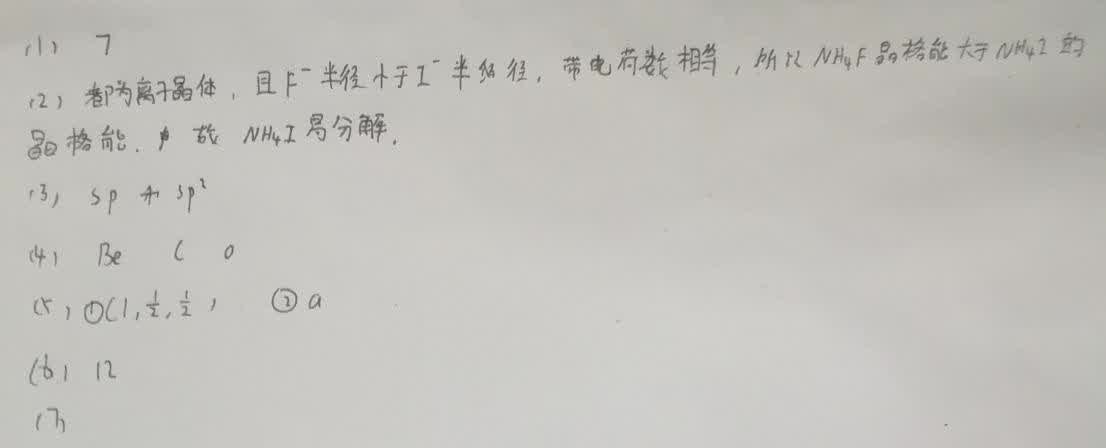 (1) 7
(2) 都为离子晶体，且F⁻半径小于I⁻半径，带电荷数相等，所以NH₄F晶格能大于NH₄I的
晶格能．故NH₄I易分解．
(3) sp 和 sp²
(4) Be C O
(5) ①(1,½,½) ②a
(6) 12
(7)